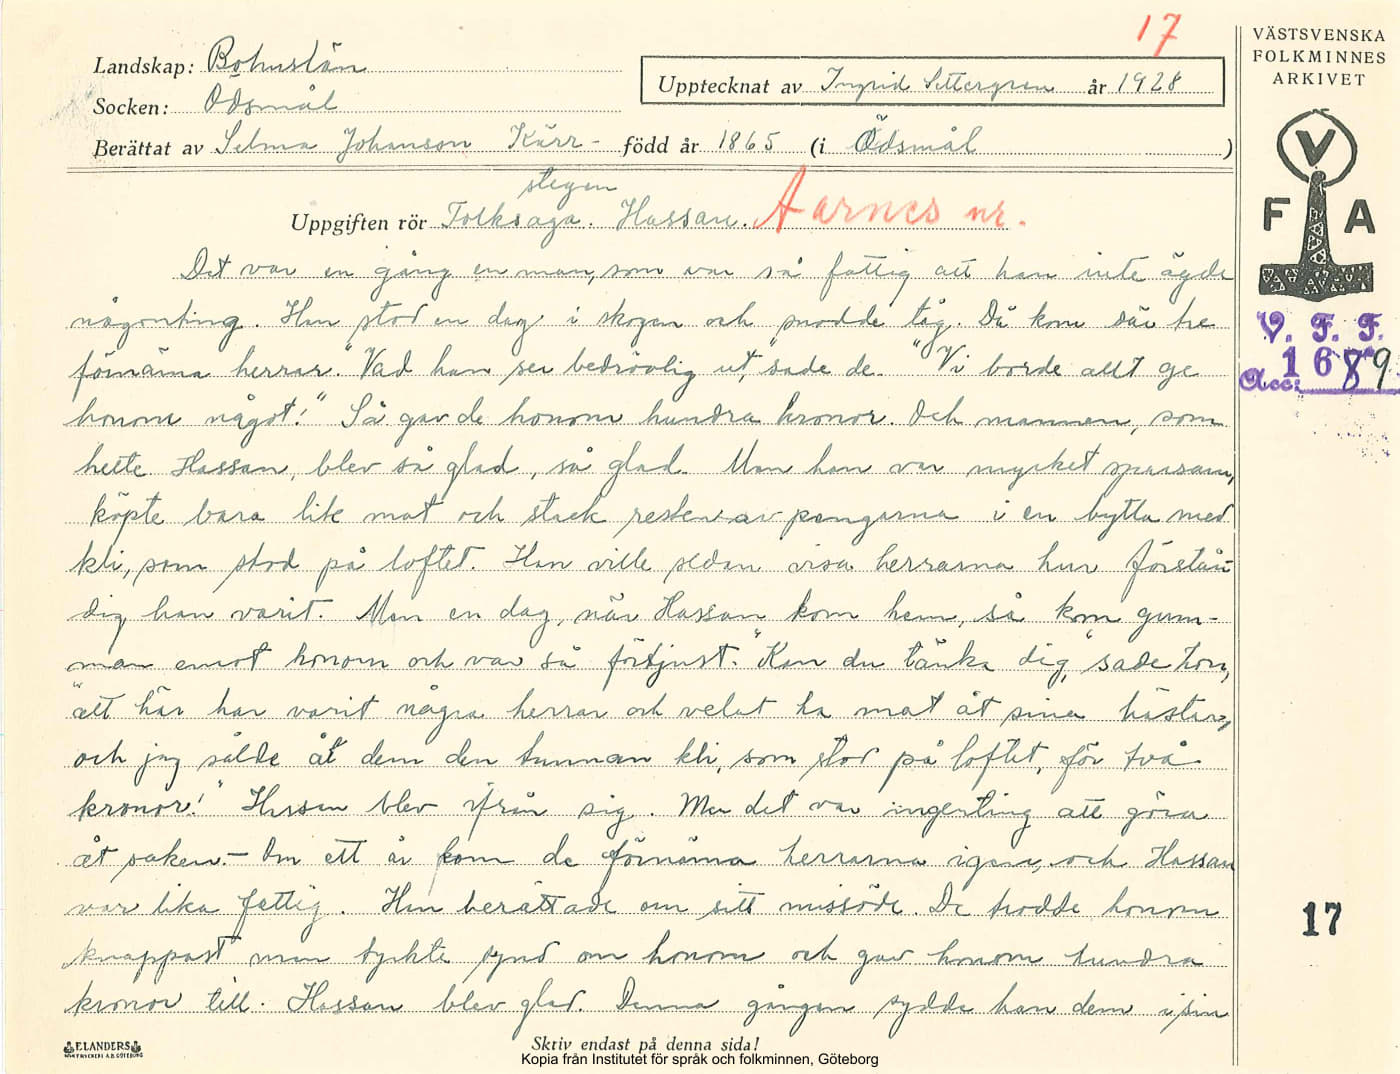 17
VÄSTSVENSKA
FOLKMINNES
ARKIVET
Landskap: Bohuslän
Upptecknat av Ingrid Settergren år 1928
Socken: Ödsmål
Berättat av Selma Johanson Kärr- född år 1865 (i Ödsmål)
stegen
Uppgiften rör Folksaga. Hassan. Aarnes nr.
V
F A
Det var en gång en man, som var så fattig att han inte ägde
någonting. Han stod en dag i skogen och snodde tåg. Då kom där tre
förnäma herrar. "Vad han ser bedrövlig ut," sade de. "Vi borde allt ge
honom något!" Så gav de honom hundra kronor. Och mannen, som
hette Hassan, blev så glad, så glad. Men han var mycket sparsam,
köpte bara lite mat och stack resten av pengarna i en bytta med
kli, som stod på loftet. Han ville sedan visa herrarna hur förstån-
dig han varit. Men en dag, när Hassan kom hem, så kom gum-
man emot honom och var så förtjust. "Kan du tänka dig," sade hon,
"att här har varit några herrar och velat ha mat åt sina hästar,
och jag sålde åt dem den tunnan kli, som stod på loftet, för två
kronor!" Hassan blev ifrån sig. Men det var ingenting att göra
åt saken. – Om ett år kom de förnäma herrarna igen, och Hassan
var lika fattig. Han berättade om sitt missöde. De trodde honom
knappast men tyckte synd om honom och gav honom hundra
kronor till. Hassan blev glad. Denna gången sydde han dem i sin
V. F. F.
Acc: 1689
17
ELANDERS
BOKTRYCKERI A.B. GÖTEBORG
Skriv endast på denna sida!
Kopia från Institutet för språk och folkminnen, Göteborg